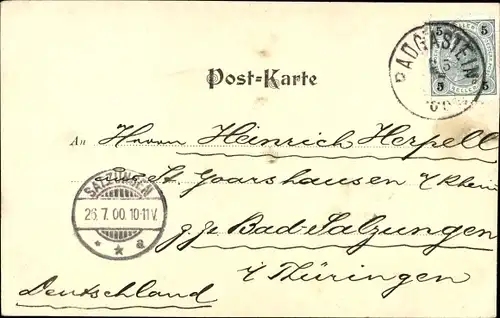 5 5
5 5
BADGASTEIN
00
Post-Karte
An Herrn Heinrich Herpell
aus St. Goarshausen a/Rhein
SALZUNGEN
26.7.00.10-11V.
* * a
z. Z. Bad-Salzungen
i/Thüringen
Deutschland